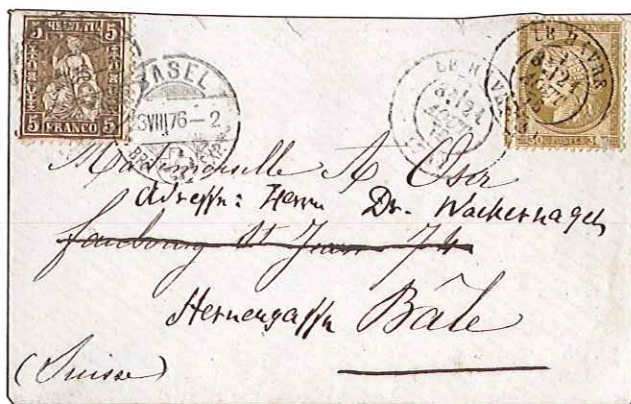 5 HELVETIA 5
5 FRANCO 5
BASEL
23 VIII 76-2
LE HAVRE
AOUT
LE HAVRE
AOUT
Mademoiselle A Oser
Adresse: Herrn Dr. Wackernagel
faubourg St Jean 74
Herrengasse Bâle
(Suisse)